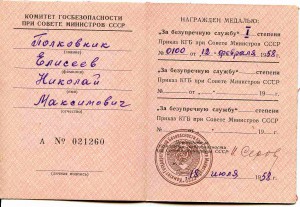 КОМИТЕТ ГОСБЕЗОПАСНОСТИ
ПРИ СОВЕТЕ МИНИСТРОВ СССР
Полковник
(звание)
Елисеев
(фамилия)
Николай
(имя)
Максимович
(отчество)
А № 021260
(личная подпись)
НАГРАЖДЕН МЕДАЛЬЮ:
„За безупречную службу“ I степени
Приказ КГБ при Совете Министров СССР
№ 0100 от „12“ февраля 1958 г.
„За безупречную службу“ степени
Приказ КГБ при Совете Министров СССР
№ от „ “ 19 г.
„За безупречную службу“ степени
Приказ КГБ при Совете Министров СССР
№ от „ “ 19 г.
„18“ июля 1958 г.